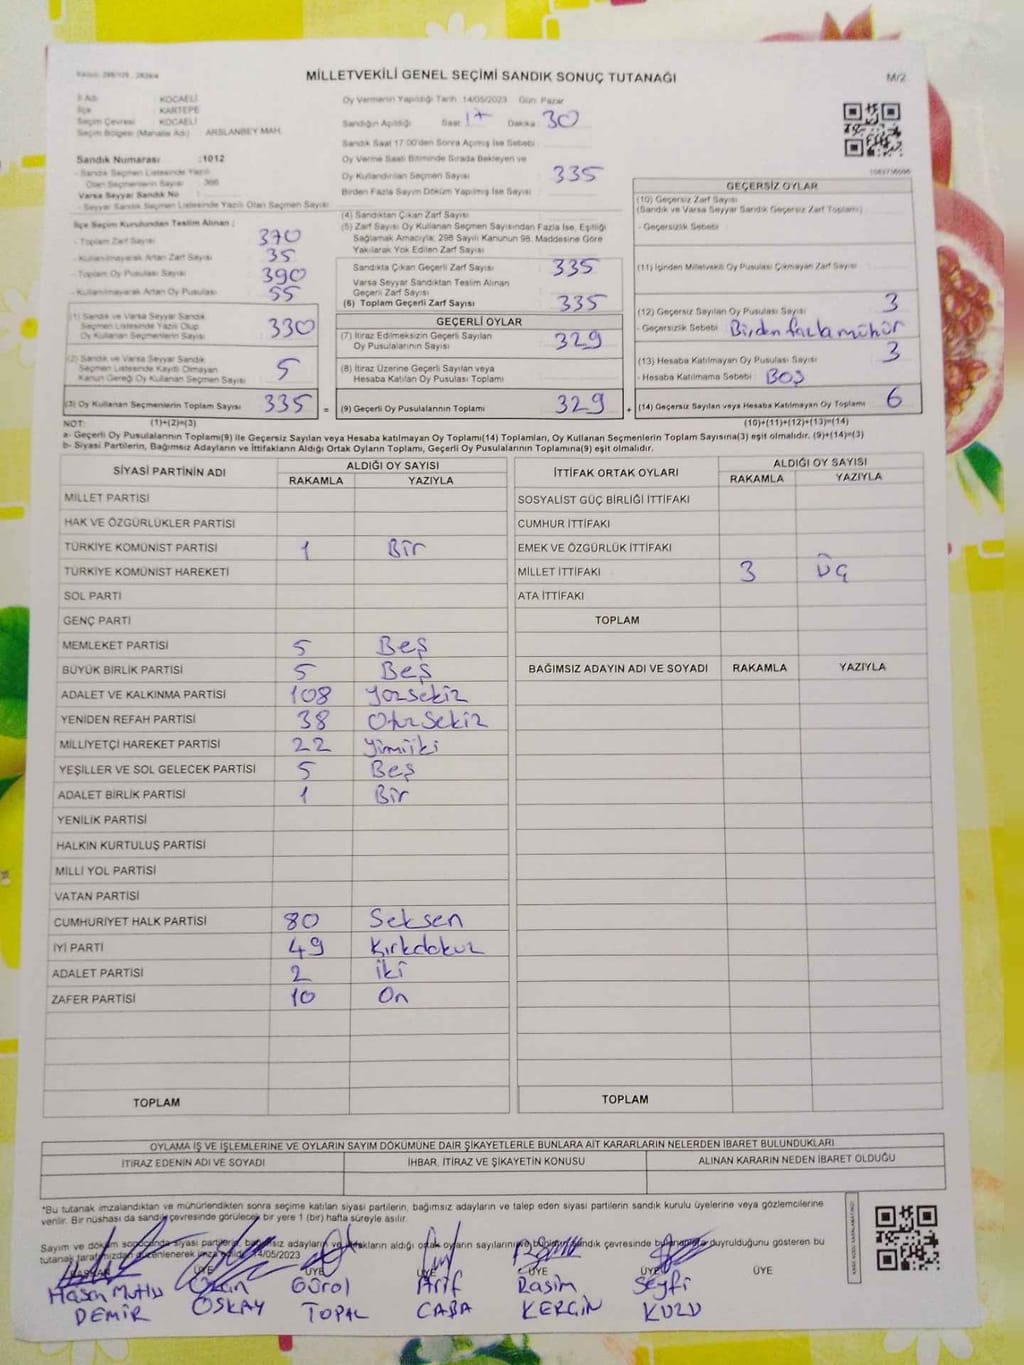 MİLLETVEKİLİ GENEL SEÇİMİ SANDIK SONUÇ TUTANAĞI
M/2
İl Adı : KOCAELİ
İlçe : KARTEPE
Seçim Çevresi : KOCAELİ
Seçim Bölgesi (Mahalle Adı) : ARSLANBEY MAH.
Sandık Numarası : 1012
- Sandık Seçmen Listesinde Yazılı
Olan Seçmenlerin Sayısı : 366
Varsa Seyyar Sandık No :
- Seyyar Sandık Listesinde Yazılı Olan Seçmen Sayısı :
Oy Vermenin Yapıldığı Tarih :14/05/2023 Gün: Pazar
Sandığın Açıldığı Saat 17 Dakika 30
Sandık Saat 17.00'den Sonra Açılmış İse Sebebi
Oy Verme Saati Bitiminde Sırada Bekleyen ve
Oy Kullandırılan Seçmen Sayısı 335
Birden Fazla Sayım Döküm Yapılmış İse Sayısı
İlçe Seçim Kurulundan Teslim Alınan ;
- Toplam Zarf Sayısı 370
- Kullanılmayarak Artan Zarf Sayısı 35
- Toplam Oy Pusulası Sayısı 390
- Kullanılmayarak Artan Oy Pusulası 55
(1) Sandık ve Varsa Seyyar Sandık
Seçmen Listesinde Yazılı Olup
Oy Kullanan Seçmen Sayısı 330
(2) Sandık ve Varsa Seyyar Sandık
Seçmen Listesinde Kayıtlı Olmayan
Kanun Gereği Oy Kullanan Seçmen Sayısı 5
(3) Oy Kullanan Seçmenlerin Toplam Sayısı 335 =
(4) Sandıktan Çıkan Zarf Sayısı
(5) Zarf Sayısı Oy Kullanan Seçmen Sayısından Fazla İse, Eşitliği
Sağlamak Amacıyla; 298 Sayılı Kanunun 98. Maddesine Göre
Yakılarak Yok Edilen Zarf Sayısı
Sandıkta Çıkan Geçerli Zarf Sayısı 335
Varsa Seyyar Sandıktan Teslim Alınan
Geçerli Zarf Sayısı
(6) Toplam Geçerli Zarf Sayısı 335
GEÇERLİ OYLAR
(7) İtiraz Edilmeksizin Geçerli Sayılan
Oy Pusulalarının Sayısı 329
(8) İtiraz Üzerine Geçerli Sayılan veya
Hesaba Katılan Oy Pusulası Toplamı
(9) Geçerli Oy Pusulalarının Toplamı 329 +
GEÇERSİZ OYLAR
(10) Geçersiz Zarf Sayısı
(Sandık ve Varsa Seyyar Sandık Geçersiz Zarf Toplamı)
- Geçersizlik Sebebi
(11) İçinden Milletvekili Oy Pusulası Çıkmayan Zarf Sayısı
(12) Geçersiz Sayılan Oy Pusulası Sayısı 3
- Geçersizlik Sebebi Birden fazla mühür
(13) Hesaba Katılmayan Oy Pusulası Sayısı 3
- Hesaba Katılmama Sebebi BOŞ
(14) Geçersiz Sayılan veya Hesaba Katılmayan Oy Toplamı 6
NOT: (1)+(2)=(3)
(10)+(11)+(12)+(13)=(14)
a- Geçerli Oy Pusulalarının Toplamı(9) ile Geçersiz Sayılan veya Hesaba katılmayan Oy Toplamı(14) Toplamları, Oy Kullanan Seçmenlerin Toplam Sayısına(3) eşit olmalıdır. (9)+(14)=(3)
b- Siyasi Partilerin, Bağımsız Adayların ve İttifakların Aldığı Oy Sayıları Toplamı, Geçerli Oy Pusulalarının Toplamına(9) eşit olmalıdır.
SİYASİ PARTİNİN ADI
ALDIĞI OY SAYISI
RAKAMLA YAZIYLA
MİLLET PARTİSİ
HAK VE ÖZGÜRLÜKLER PARTİSİ
TÜRKİYE KOMÜNİST PARTİSİ 1 Bir
TÜRKİYE KOMÜNİST HAREKETİ
SOL PARTİ
GENÇ PARTİ
MEMLEKET PARTİSİ 5 Beş
BÜYÜK BİRLİK PARTİSİ 5 Beş
ADALET VE KALKINMA PARTİSİ 108 Yüzsekiz
YENİDEN REFAH PARTİSİ 38 Otuzsekiz
MİLLİYETÇİ HAREKET PARTİSİ 22 Yirmiiki
YEŞİLLER VE SOL GELECEK PARTİSİ 5 Beş
ADALET BİRLİK PARTİSİ 1 Bir
YENİLİK PARTİSİ
HALKIN KURTULUŞ PARTİSİ
MİLLİ YOL PARTİSİ
VATAN PARTİSİ
CUMHURİYET HALK PARTİSİ 80 Seksen
İYİ PARTİ 49 Kırkdokuz
ADALET PARTİSİ 2 İki
ZAFER PARTİSİ 10 On
TOPLAM
İTTİFAK ORTAK OYLARI
ALDIĞI OY SAYISI
RAKAMLA YAZIYLA
SOSYALİST GÜÇ BİRLİĞİ İTTİFAKI
CUMHUR İTTİFAKI
EMEK VE ÖZGÜRLÜK İTTİFAKI
MİLLET İTTİFAKI 3 Üç
ATA İTTİFAKI
TOPLAM
BAĞIMSIZ ADAYIN ADI VE SOYADI RAKAMLA YAZIYLA
TOPLAM
OYLAMA İŞ VE İŞLEMLERİNE VE OYLARIN SAYIM DÖKÜMÜNE DAİR ŞİKAYETLERLE BUNLARA AİT KARARLARIN NELERDEN İBARET BULUNDUKLARI
İTİRAZ EDENİN ADI VE SOYADI
İHBAR, İTİRAZ VE ŞİKAYETİN KONUSU
ALINAN KARARIN NEDEN İBARET OLDUĞU
*Bu tutanak imzalandıktan ve mühürlendikten sonra seçime katılan siyasi partilerin, bağımsız adayların ve talep eden siyasi partilerin sandık kurulu üyelerine veya gözlemcilerine
verilir. Bir nüshası da sandık çevresinde görülecek bir yere 1 (bir) hafta süreyle asılır.
Sayım ve döküm sonucunda siyasi partilerin, bağımsız adayların ve ittifakların aldığı ortak oyların sayılarının ve bunların sandık çevresinde duyrulduğunu gösteren bu
tutanak tarafımızdan düzenlenerek imza edildi. 14/05/2023
BAŞKAN ÜYE ÜYE ÜYE ÜYE ÜYE ÜYE
Hasan Mutlu Ozan Gürol Arif Rasim Seyfi
DEMİR ÖSKAY TOPAL CABA KERGİN KUZU